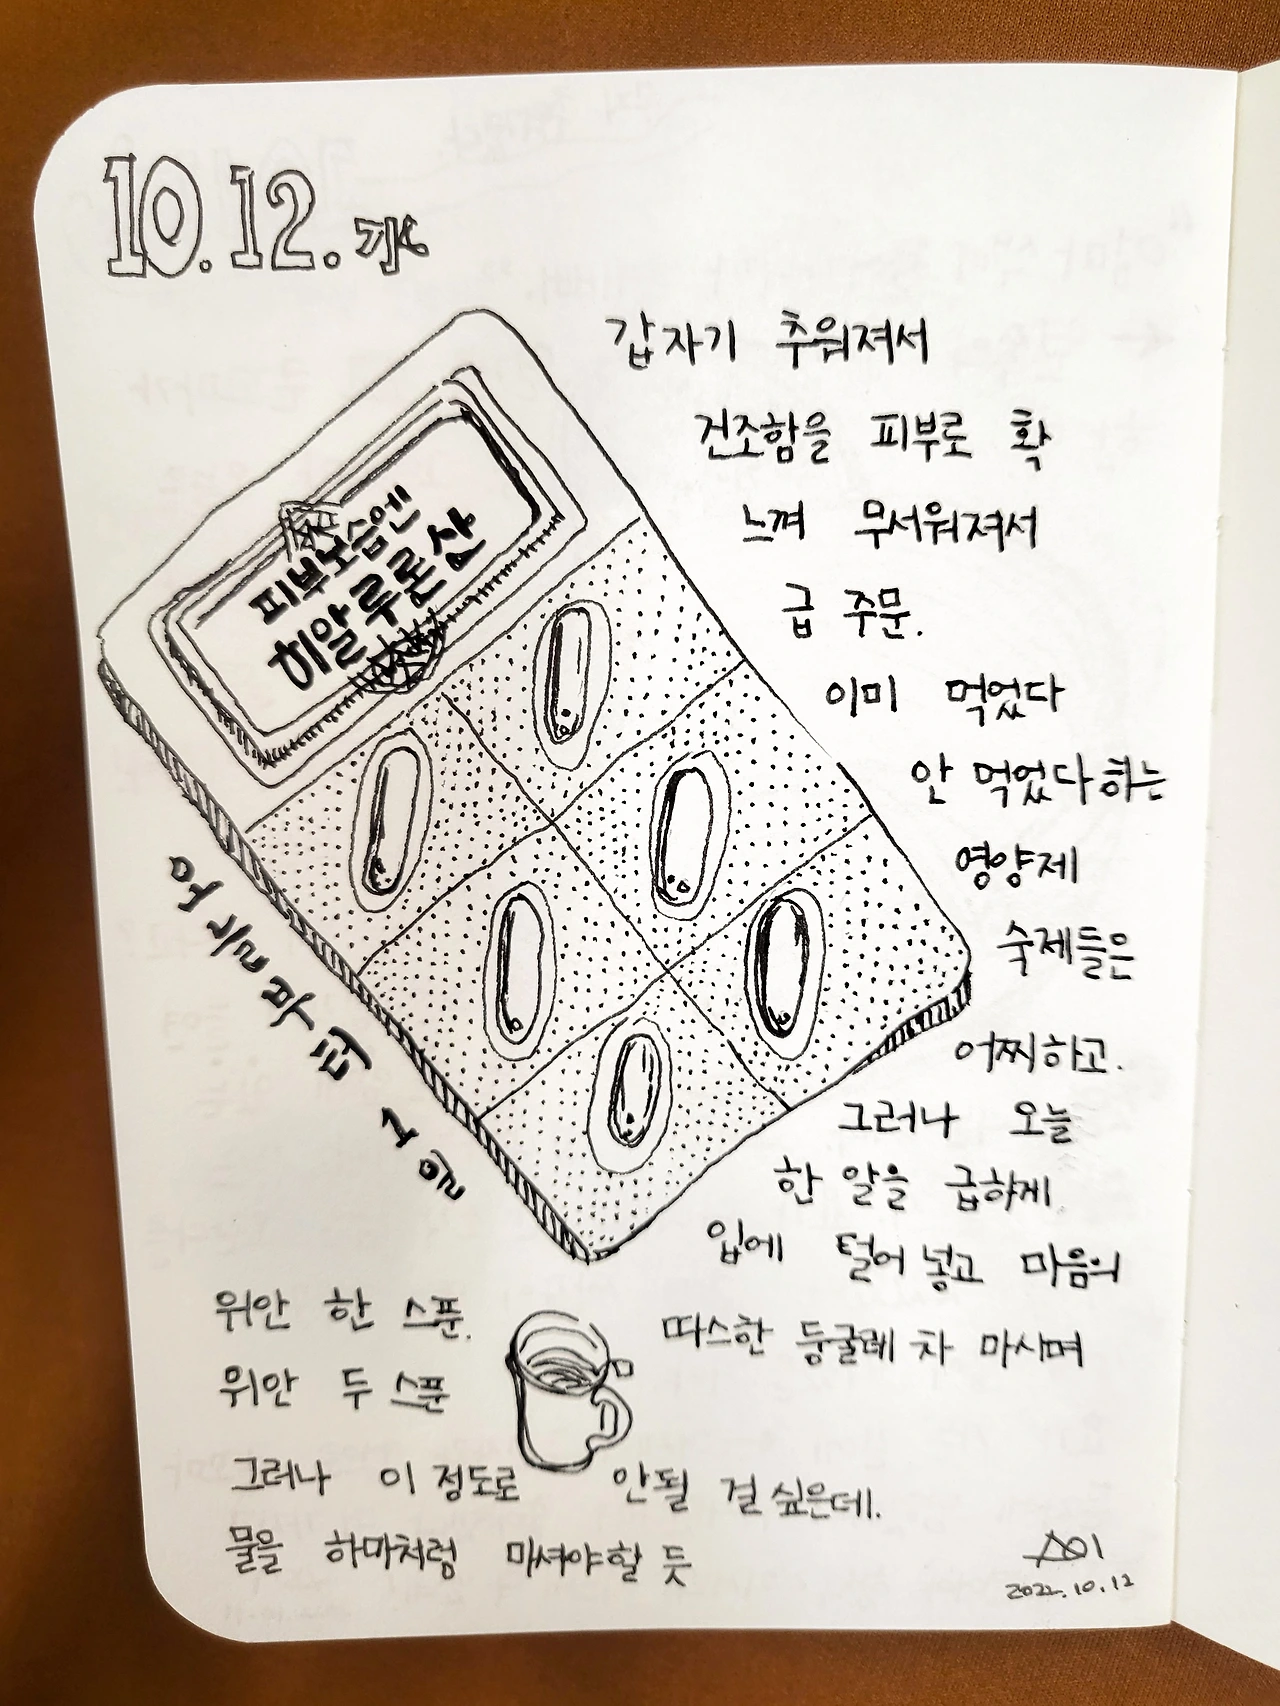 10.12.水
갑자기 추워져서
건조함을 피부로 확
느껴 무서워져서
급 주문.
이미 먹었다
안 먹었다하는
영양제
숙제들은
어찌하고.
그러나 오늘
한 알을 급하게
입에 털어 넣고 마음의
따스한 둥굴레 차 마시며
피부보습엔
히알루론산
오늘부터 1일
위안 한 스푼.
위안 두 스푼
그러나 이 정도로 안될 걸 싶은데.
물을 하마처럼 마셔야할 듯
2022.10.12